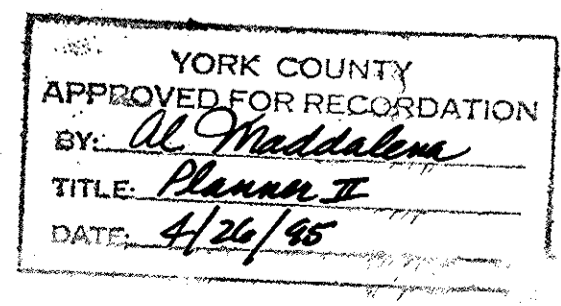 YORK COUNTY
APPROVED FOR RECORDATION
BY: Al Maddalena
TITLE: Planner II
DATE: 4/26/95